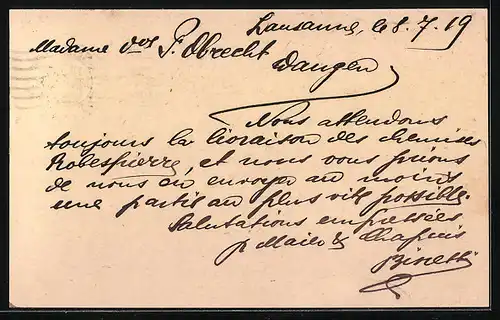 Lausanne, le 8. 7. 19
Madame Vve P. Obrecht
Wangen
Nous attendons
toujours la livraison des chemises
Robespierre, et nous vous prions
de nous en envoyer au moins
une partie au plus vite possible.
Salutations empressées
p Maier & Chapuis
Binetti